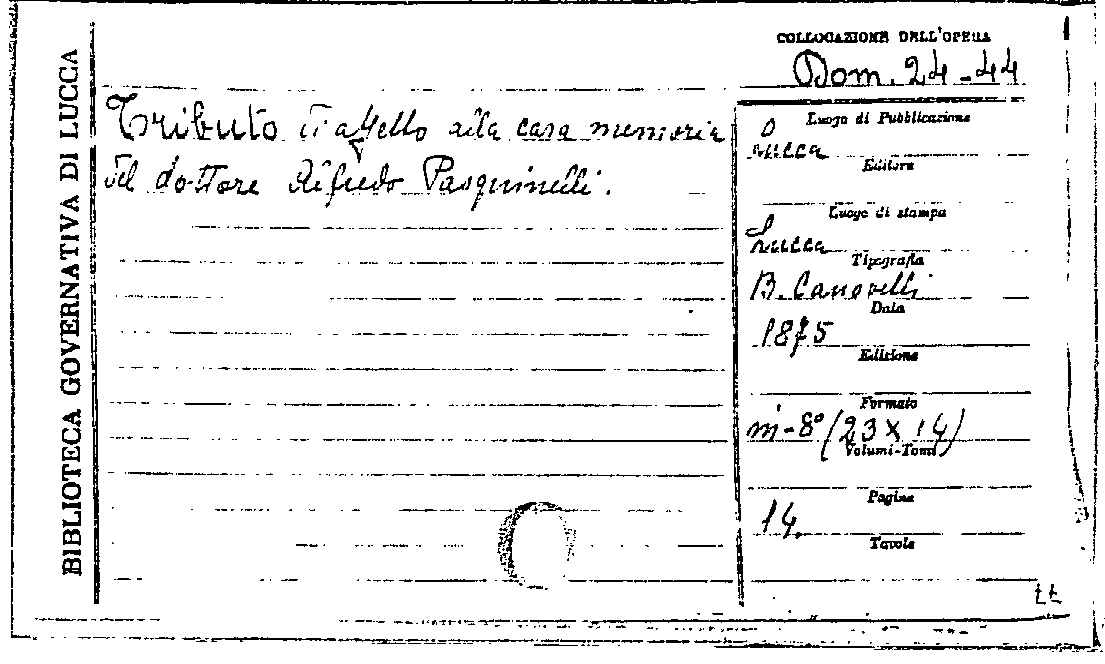 BIBLIOTECA GOVERNATIVA DI LUCCA
COLLOCAZIONE DELL'OPERA
Dom. 24-44
Tributo di affetto alla cara memoria
del dottore Alfredo Pasquinelli.
Luogo di Pubblicazione
Lucca
Editore
Luogo di stampa
Lucca
Tipografia
B. Canovetti
Data
1875
Edizione
Formato
in-8° (23 x 14)
Volumi-Tomi
Pagine
14.
Tavole